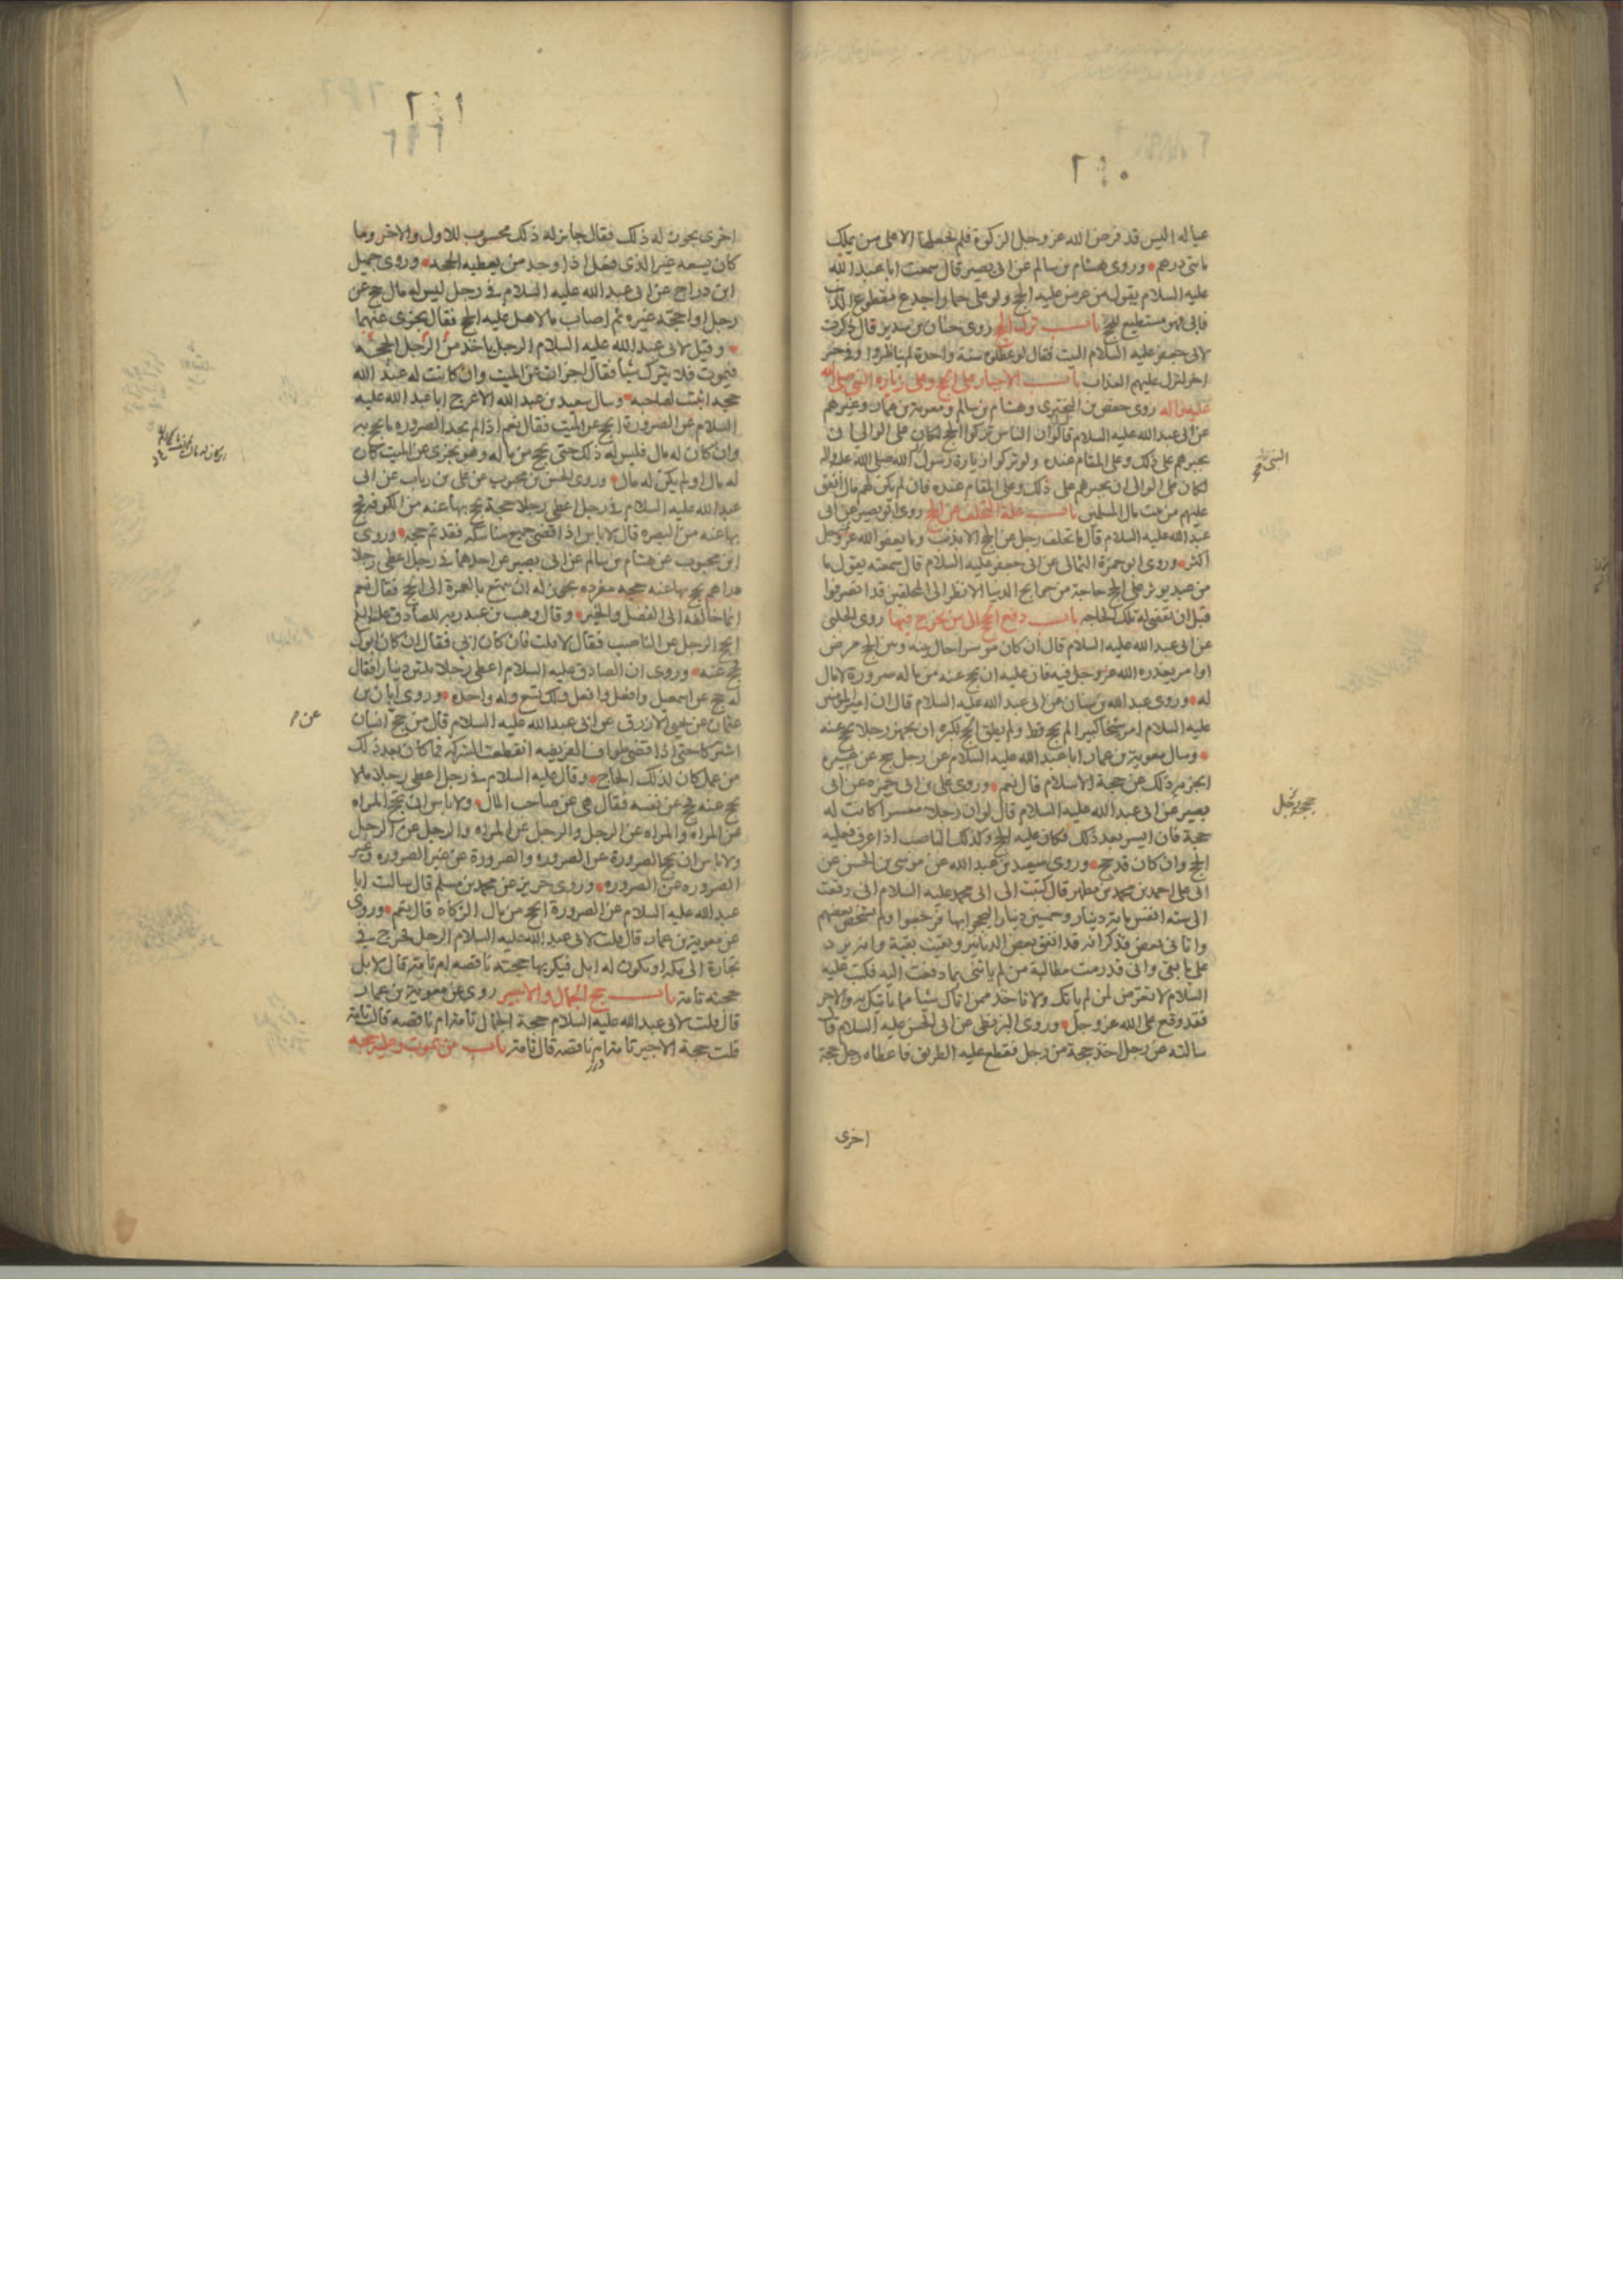 ٢٤٠
عياله اليس قد فرض الله عز وجل الزكوة فلم يجعلها الا على من يملك
مائتي درهم وروى هشام بن سالم عن ابي بصير قال سمعت ابا عبد الله
عليه السلام يقول من عرض عليه الحج ولو على حمار اجدع مقطوع الذنب
فابى فهو مستطيع للحج باب ترك الحج روى حنان بن سدير قال ذكرت
لابي جعفر عليه السلام البيت فقال لو عطلوه سنة واحدة لم يناظروا وفي خبر
اخر لنزل عليهم العذاب باب الاجبار على الحج وعلى زيارة النبي صلى الله
عليه واله روى حفص بن البختري وهشام بن سالم ومعوية بن عمار وغيرهم
عن ابي عبد الله عليه السلام قال لو ان الناس تركوا الحج لكان على الوالي ان
يجبرهم على ذلك وعلى المقام عنده ولو تركوا زيارة رسول الله صلى الله عليه واله
لكان على الوالي ان يجبرهم على ذلك وعلى المقام عنده فان لم يكن لهم مال انفق
عليهم من بيت مال المسلمين باب علة التخلف عن الحج روى ابو بصير عن ابي
عبد الله عليه السلام قال ما تخلف رجل عن الحج الا بذنب وما يعفو الله عز وجل
اكثر وروى ابو حمزة الثمالي عن ابي جعفر عليه السلام قال سمعته يقول ما
من عبد يوثر على الحج حاجة من حوايج الدنيا الا نظر الى المحلقين قد انصرفوا
قبل ان تقضى له تلك الحاجه باب دفع الحج الى من يخرج فيها روى الحلبي
عن ابي عبد الله عليه السلام قال ان كان موسرا حال بينه وبين الحج مرض
او امر يعذره الله عز وجل فيه فان عليه ان يحج عنه من ماله صرورة لا مال
له وروى عبد الله بن سنان عن ابي عبد الله عليه السلام قال ان امير المومنين
عليه السلام امر شيخا كبيرا لم يحج قط ولم يطق الحج لكبره ان يجهز رجلا يحج عنه
وسال معوية بن عمار ابا عبد الله عليه السلام عن رجل حج عن غيره
ايجزيه ذلك عن حجة الاسلام قال نعم وروى علي بن ابي حمزه عن ابي
بصير عن ابي عبد الله عليه السلام قال لو ان رجلا معسرا كانت له
حجة فان ايسر بعد ذلك فكان عليه الحج وكذلك الناصب اذا عرف فعليه
الحج وان كان قد حج وروى سعيد بن عبد الله عن موسى بن الحسن عن
ابي علي احمد بن محمد بن مطهر قال كتبت الى ابي محمد عليه السلام اني دفعت
الى سته انفس مائة دينار وخمسين دينارا ليحجوا بها فرجعوا ولم يشخص بعضهم
واتاني بعض فذكر انه قد انفق بعض الدنانير وبقيت بقية وانه يرد
علي ما بقي واني قد رمت مطالبة من لم ياتني بما دفعت اليه فكتب عليه
السلام لا تعرض لمن لم ياتك ولا تاخذ ممن اتاك شيئا مما ياتيك به والاجر
فقد وقع على الله عز وجل وروى البزنطي عن ابي الحسن عليه السلام قال
سالته عن رجل اخذ حجة من رجل فقطع عليه الطريق فاعطاه رجل حجة
اخرى
٢٤١
اخرى يجوز له ذلك فقال جائز له ذلك محسوب للاول والاخر وما
كان يسعه غير الذي فعل اذا وجد من يعطيه الحجه وروى جميل
ابن دراج عن ابي عبد الله عليه السلام في رجل ليس له مال حج عن
رجل او احجه غيره ثم اصاب مالا هل عليه الحج فقال يجزي عنهما
وقيل لابي عبد الله عليه السلام الرجل ياخذ من الرجل الحجه
فيموت فلا يترك شيئا فقال اجزات عن الميت وان كانت له عند الله
حجه اثبتت لصاحبه وسال سعيد بن عبد الله الاعرج ابا عبد الله عليه
السلام عن الصرورة ايحج عن الميت فقال نعم اذا لم يجد الصروره ما يحج به
وان كان له مال فليس له ذلك حتى يحج من ماله وهو يجزى عن الميت كان
له مال او لم يكن له مال وروى الحسن بن محبوب عن علي بن رياب عن ابي
عبد الله عليه السلام في رجل اعطى رجلا حجة يحج بها عنه من الكوفه فحج
بها عنه من البصره قال لا باس اذا قضى جميع مناسكه فقد تم حجه وروى
ابن محبوب عن هشام بن سالم عن ابي بصير عن احدهما في رجل اعطى رجلا
دراهم يحج بها عنه حجه مفرده يجوز له ان يتمتع بالعمرة الى الحج فقال نعم
انما خالفه الى الفضل والخير وقال وهب بن عبد ربه للصادق عليه السلم
ايحج الرجل عن الناصب فقال لا قلت فان كان ابي فقال ان كان ابوك
فحج عنه وروى ان الصادق عليه السلام اعطى رجلا ثلثين دينارا فقال
له حج عن اسمعيل وافعل وافعل ولك تسع وله واحدة وروى ابان بن
عثمان عن يحيى الازرق عن ابي عبد الله عليه السلام قال من حج انسان
اشتركا حتى اذا قضى طواف الفريضه انقطعت الشركه فما كان بعد ذلك
من عمل كان لذلك الحاج وقال عليه السلام في رجل اعطى رجلا مالا
يحج عنه فحج عن نفسه فقال هي عن صاحب المال ولا باس ان تحج المراه
عن المراه والمراه عن الرجل والرجل عن المراه والرجل عن الرجل
ولا باس ان يحج الصرورة عن الصروره والصرورة عن غير الصروره وغير
الصروره عن الصروره وروى حريز عن محمد بن مسلم قال سالت ابا
عبد الله عليه السلام عن الصرورة ايحج من مال الزكاه قال نعم وروى
عن معوية بن عمار قال قلت لابي عبد الله عليه السلام الرجل يخرج في
تجارة الى مكه او يكون له ابل فيكريها حجته ناقصه ام تامة قال لا بل
حجته تامة باب حج الجمال والاجير روى عن معوية بن عمار
قال قلت لابي عبد الله عليه السلام حجة الجمال تامة ام ناقصه قال تامة
قلت حجة الاجير تامة ام ناقصه قال تامة باب من يموت وعليه حجه
عن